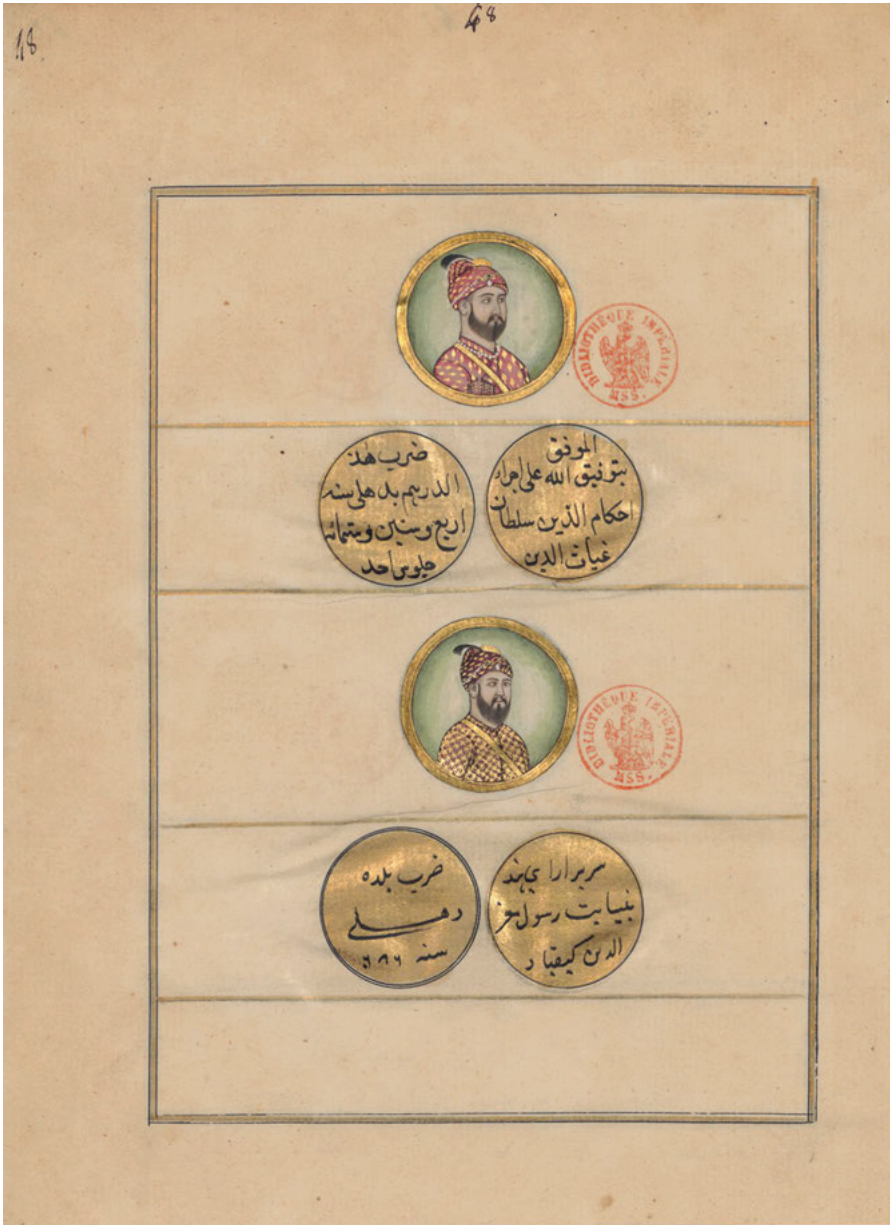 48
48
BIBLIOTHÈQUE IMPÉRIALE
MSS.
الموفق
بتوفيق الله على اجراء
احكام الدين سلطان
غياث الدين
ضرب هذ
الدرهم بدهلى سنه
اربع وستين وستمائه
جلوس احد
BIBLIOTHÈQUE IMPÉRIALE
MSS.
سرير اراى هند
بنيابت رسول معز
الدين كيقباد
ضرب بلده
دهلے
سنه ٦٨٦